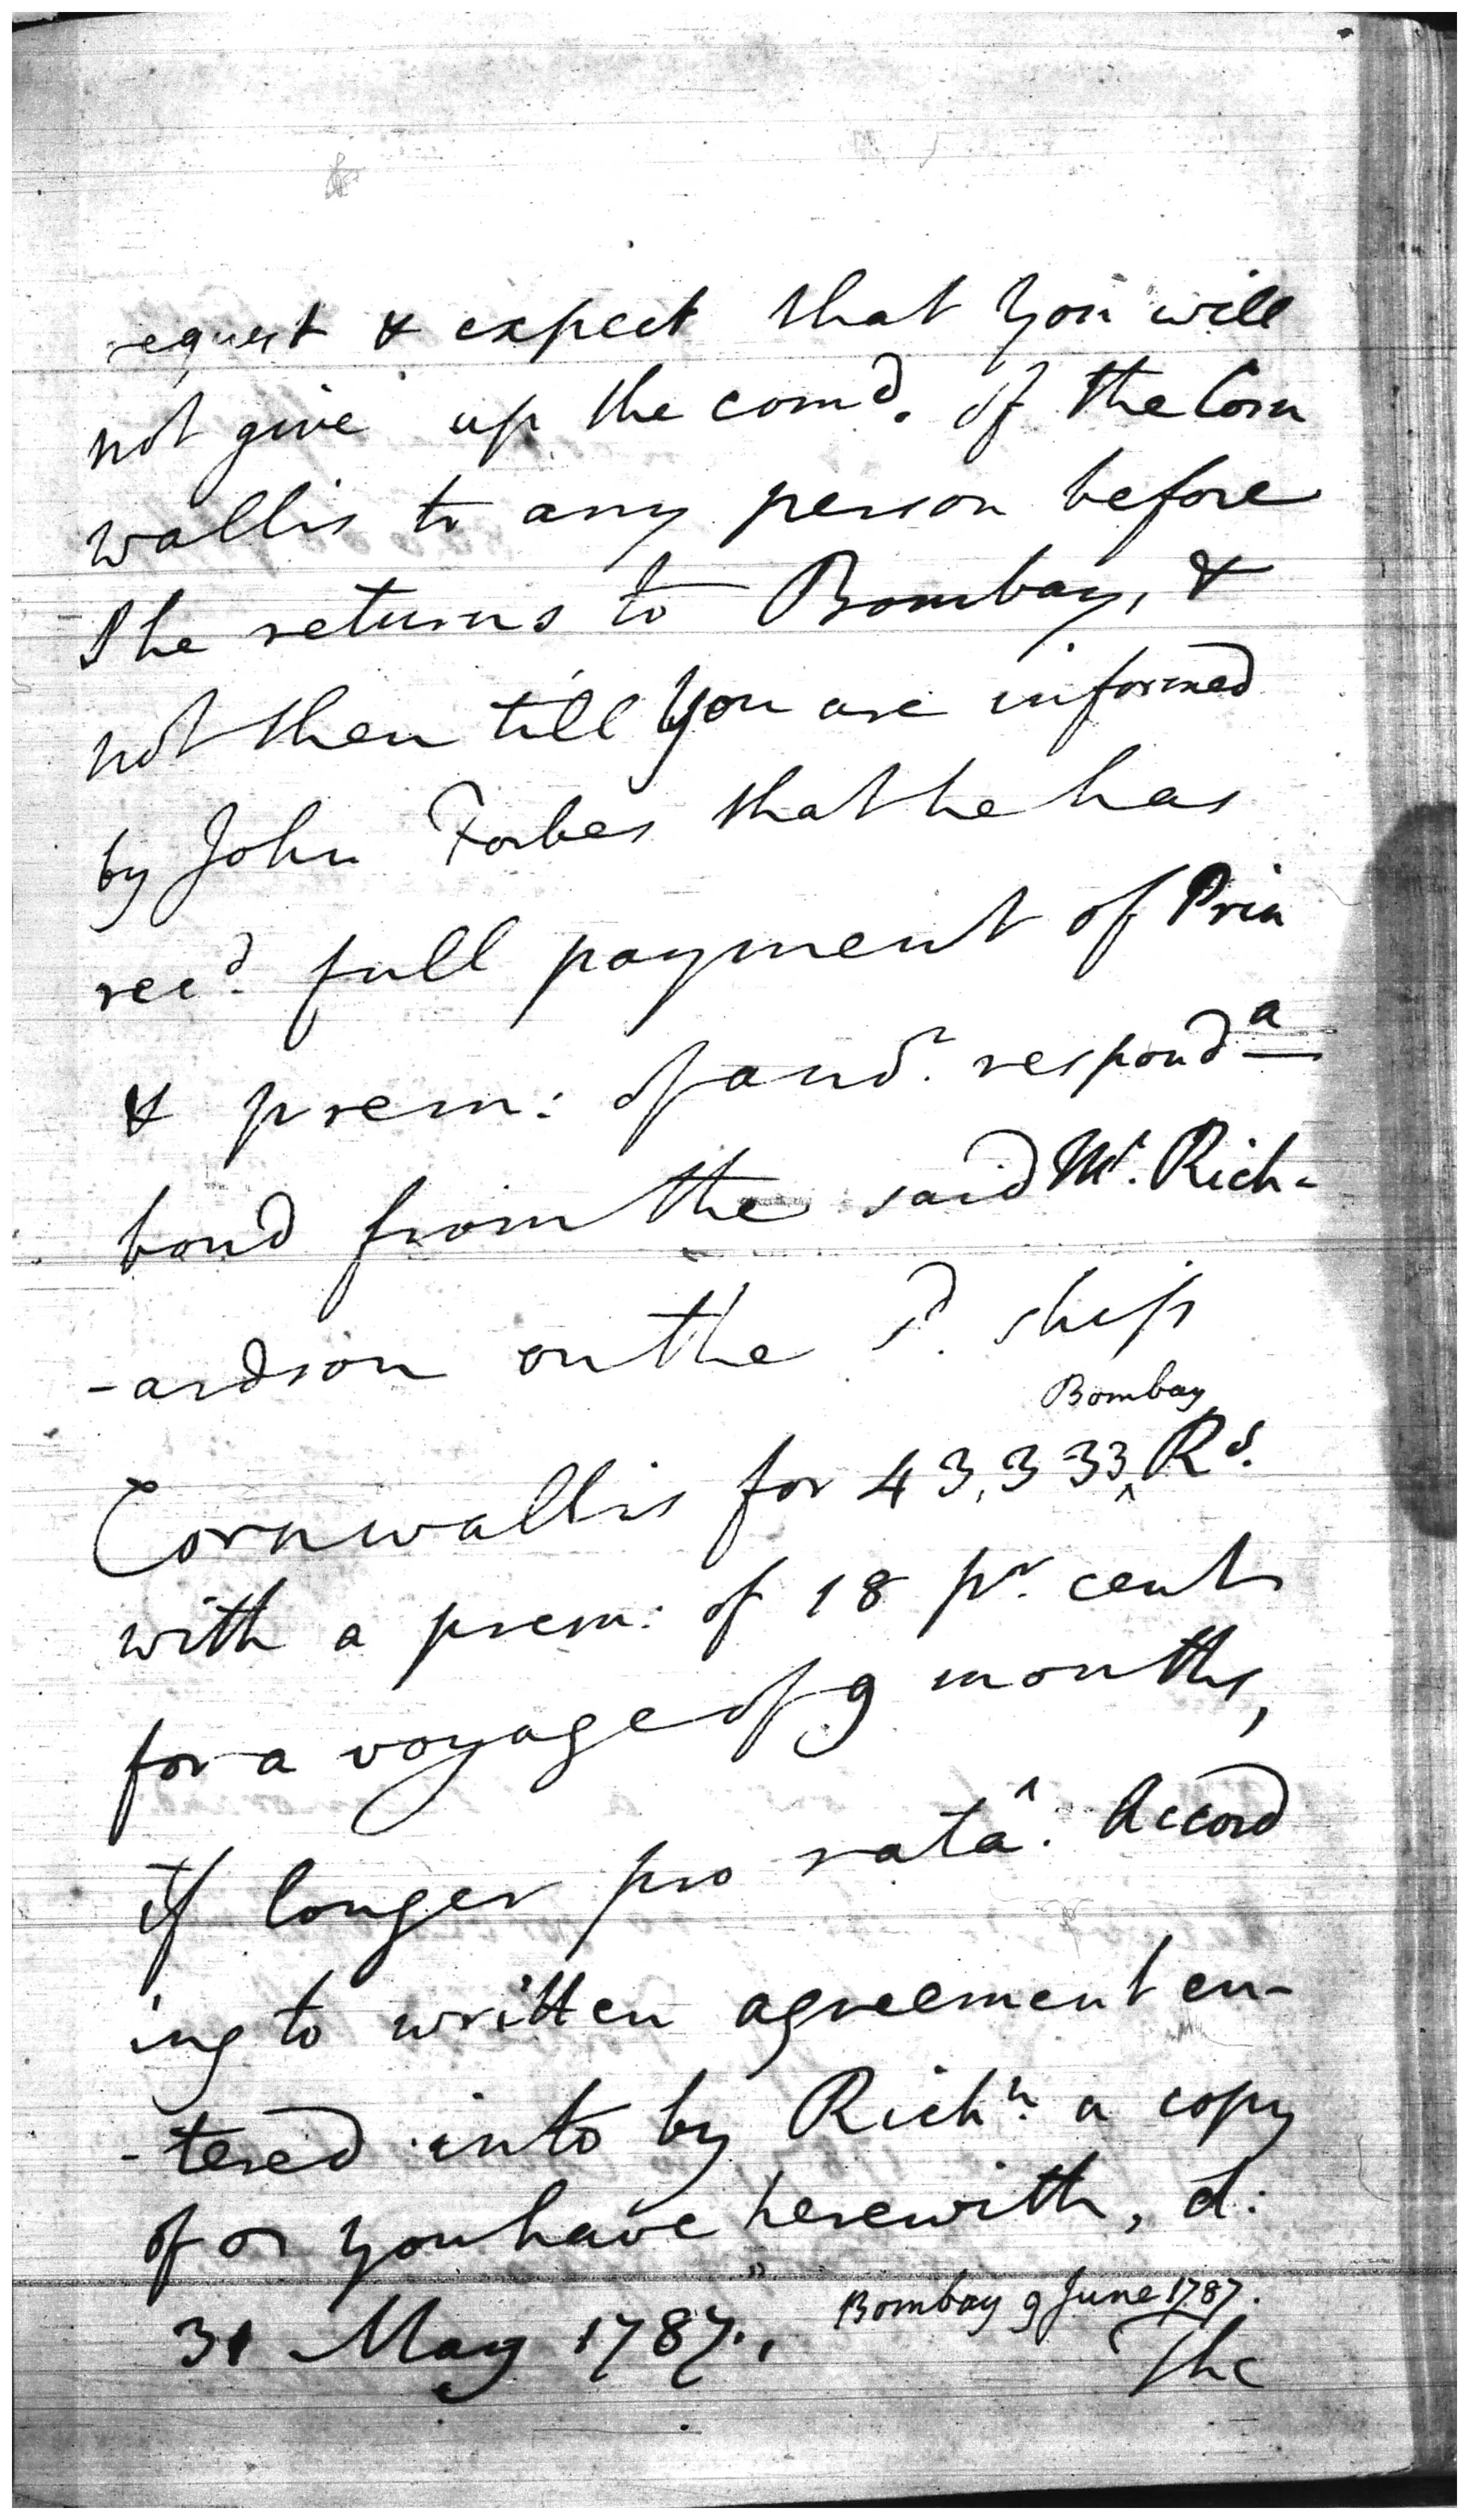 request & expect that You will
not give up the comd. of the Corn
wallis to any person before
She returns to Bombay, &
not then till You are informed
by John Forbes that he has
recd. full payment of Prin
& prem: of and r. respond a
bond from the said Mr. Rich-
-ardson on the sd. ship
Bombay
Cornwallis for 43,333 ^ Rs.
with a prem: of 18 pr. cent
for a voyage of 9 months,
if longer pro ratâ. Accord
ing to written agreement en-
-tered into by Richn. a copy
of you have herewith, d:
31 May 1787., Bombay 9 June 1787.
The